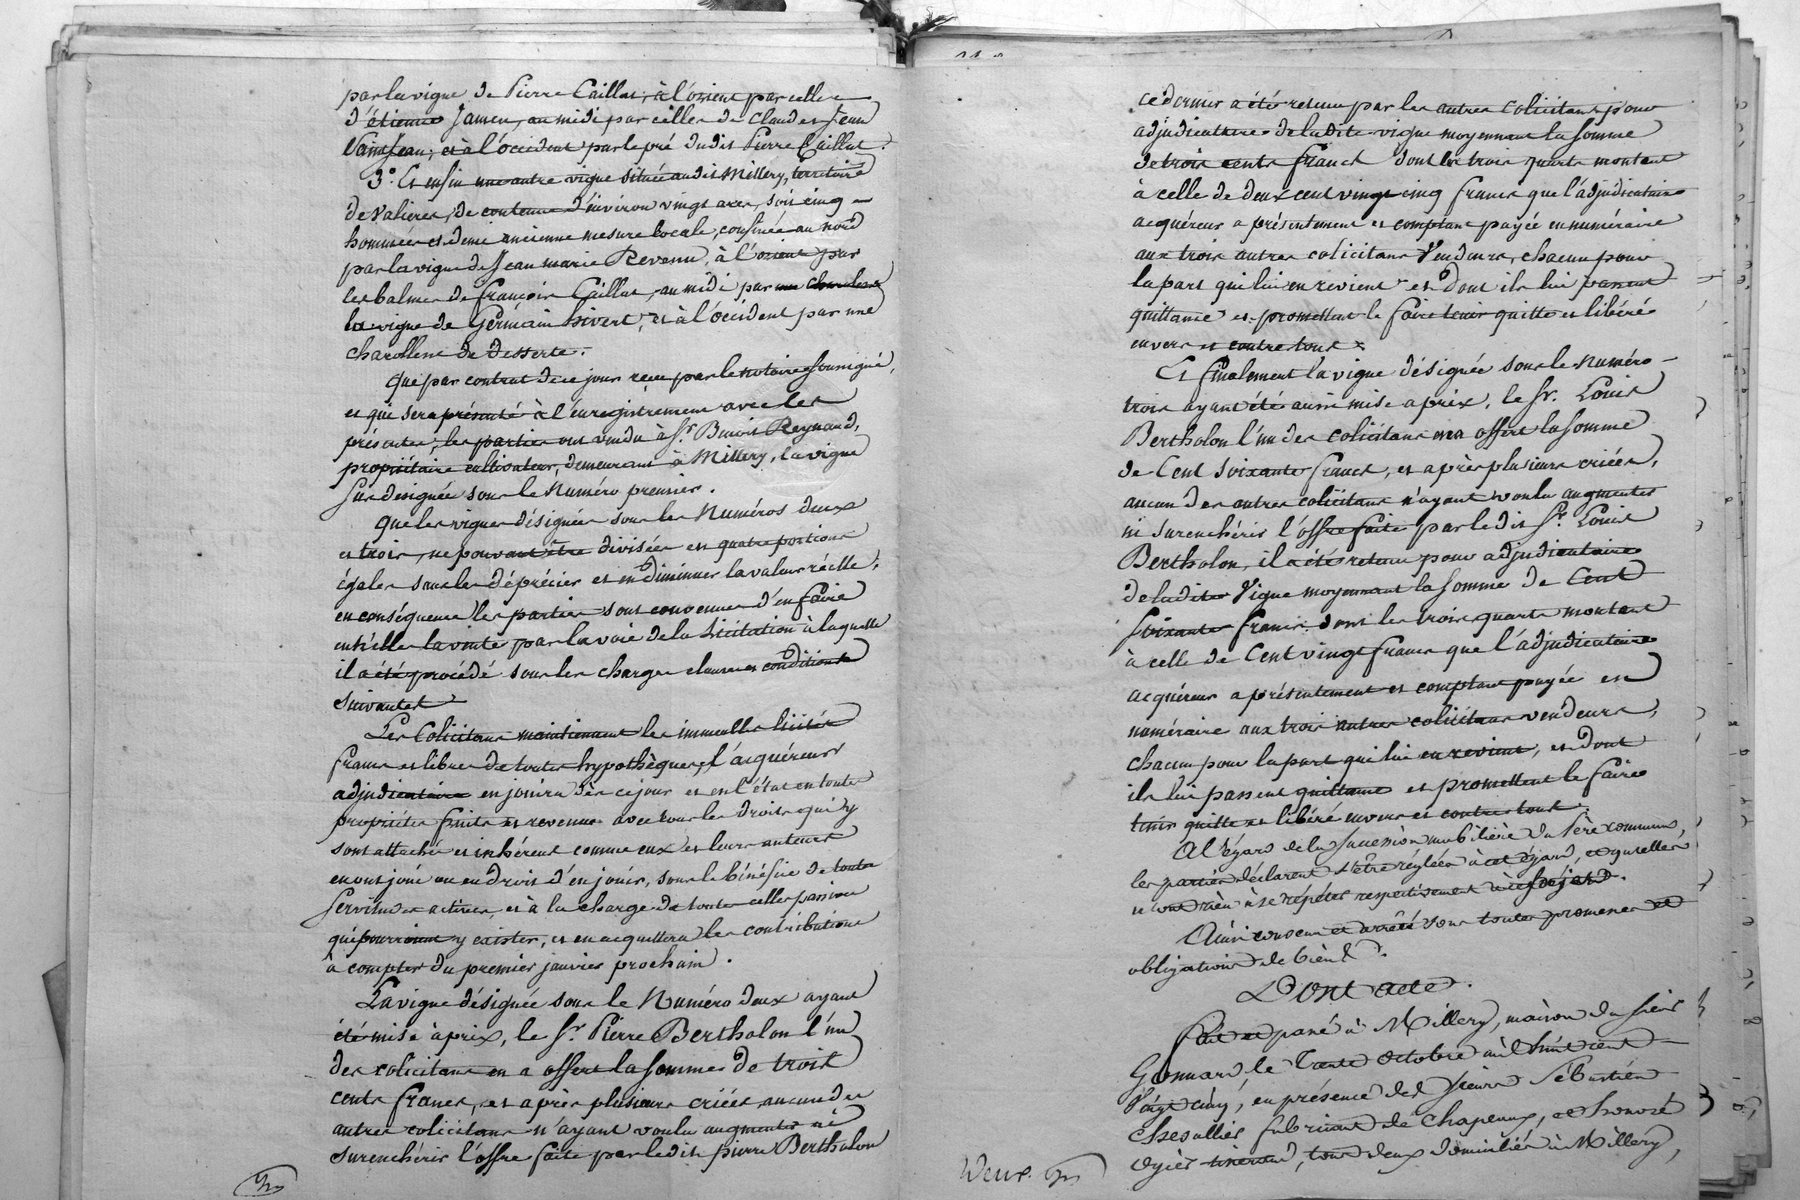 par la vigne de Pierre Caillat, à l'orient par celle
d'étienne Jamen, au midi par celle de Claude et Jean
Vainsjean, et à l'occident par le pré dudit Pierre Caillat.
3°. Et enfin une autre vigne située audit Millery, territoire
de Valieres, de contenue d'environ vingt ares, soit cinq
hommées et demi ancienne mesure locale, confinée au nord
par la vigne de Jean marie Revenu, à l'orient par
les balmes de françois Caillat, au midi par
la vigne de Germain hivert, et à l'occident par une
charollene de desserte.
Que par contrat de ce jour réçu par le notaire soussigné,
et qui sera présenté à l'enregistrement avec les
présentes, les parties ont vendu à Sr. Benoit Reynaud,
propriétaire cultivateur, demeurant à Millery, la vigne
sus désignée sous le Numéro premier.
Que les vignes désignées sous les Numéros deux
et trois, ne pouvant être divisées en quatre portions
égales sans les déprécier et en diminuer la valeur réelle,
en conséquence les parties sont convenues d'en faire
entr'elles la vente par la voie de la licitation à laquelle
il a été procédé sous les charges clauses et conditions
suivantes
Les Colicitans maintiennent les immeubles licités
francs et libres de toutes hypothèques, l'acquéreur
adjudicataire en jouira dès ce jour et en l'état en toute
propriété fruits et revenus avec tous les droits qui y
sont attachés et inhérent comme eux et leurs auteurs
en ont joui ou eu droit d'en jouir, sous le bénéfice de toute
servitudes actives, et à la charge de toutes celles passives
qui pourroient y exister, et en acquittera les contributions
à compter du premier janvier prochain.
La vigne désignée sous le Numéro deux ayant
été mise à prix, le Sr. Pierre Bertholon l'un
des colicitans en a offert la somme de trois
cents francs, et après plusieurs criées, aucun des
autres colicitans n'ayant voulu augmenter ni
surenchérir l'offre faite par ledit pierre Bertholon
ce dernier a été retenu par les autres colicitans pour
adjudicataire de ladite vigne moyennant la somme
de trois cents francs dont les trois quarts montant
à celle de deux cent vingt cinq francs que l'adjudicataire
acquéreur a présentement et comptant payée en numéraire
aux trois autres colicitans Vendeurs, chacun pour
la part qui lui en revient et dont ils lui passent
quittance et promettent le faire tenir quitte et libéré
envers et contre tous
Et finalement la vigne désignée sous le Numéro
trois ayant été aussi mise à prix, le Sr. Louis
Bertholon l'un des colicitans en a offert la somme
de Cent soixante francs, et après plusieurs criées,
aucun des autres colicitans n'ayant voulu augmenter
ni surenchérir l'offre faite par ledit Sr. Louis
Bertholon, il a été retenu pour adjudicataire
de ladite Vigne moyennant la somme de Cent
soixante francs dont les trois quarts montant
à celle de Cent vingt francs que l'adjudicataire
acquéreur a présentement et comptant payée en
numéraire aux trois autres colicitans vendeurs,
chacun pour la part qui lui en revient, et dont
ils lui passent quittance et promettent le faire
tenir quitte et libéré envers et contre tous.
A l'égard de la succession mobilière du Père commun,
les parties déclarent s'être réglées à cet égard, et qu'elles
n'ont rien à se répéter respectivement à ce sujet.
Ainsi convenu et arrêté sous toutes promesses et
obligations de biens.
Dont acte.
Fait et passé à Millery, maison du sieur
Gonnard, le Trente octobre mil huit cent
Vingt cinq, en présence des sieurs Sébastien
Chevallier fabricant de chapeaux, et honoré
ogier tisserand, tous deux domiciliés à Millery,